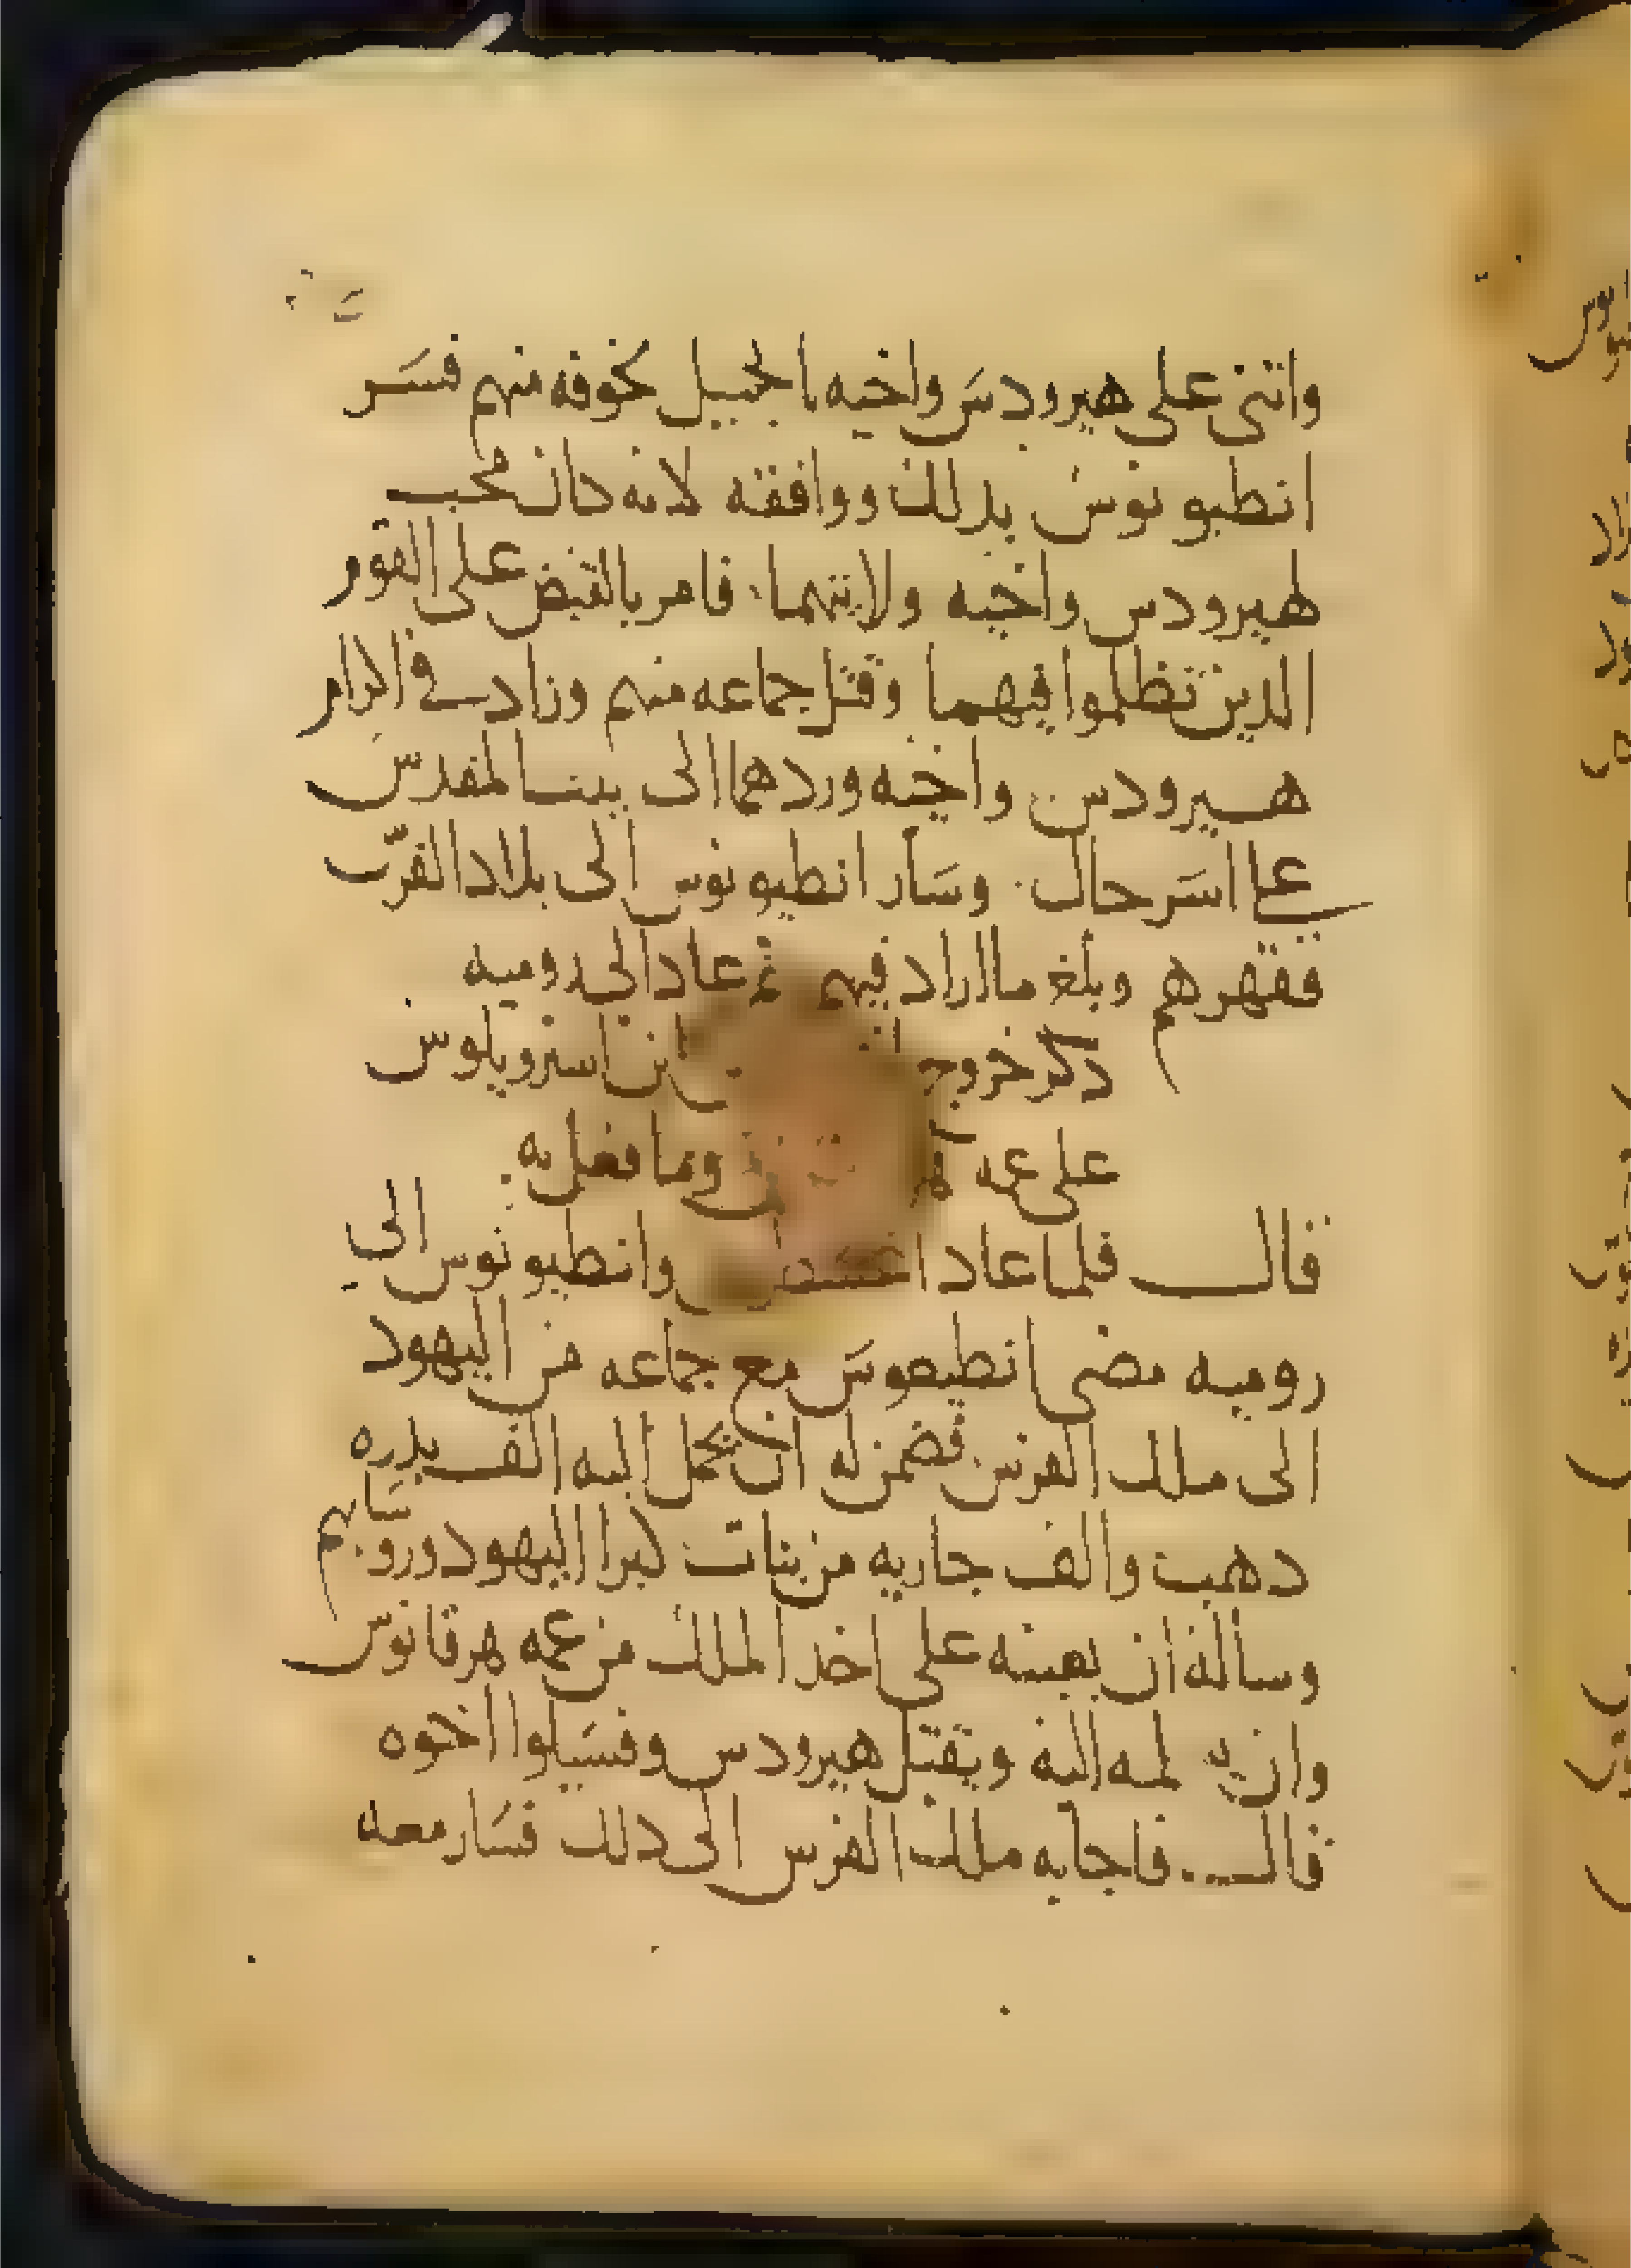 واثنى على هيرودس واخيه بالجميل لخوفه منهم فسر
انطيونوس بدلك ووافقه لانه كان محب
لهيرودس واخيه ولابيهما فامر بالقبض على القوم
الدين تظلموا فيهما وقتل جماعه منهم وزاد في اكرام
هيرودس واخيه وردهما الى بيت المقدس
على اسر حال وسار انطيونوس الى بلاد الفرس
فقهرهم وبلغ ما اراد فيهم ثم عاد الى روميه
دكر خروج ابن استروبلوس
على عمه وما فعل به
قال فلما عاد اغسطس وانطيونوس الى
روميه مضى انطيعوس مع جماعه من اليهود
الى ملك الفرس فضمن له ان يحمل اليه الف بدره
دهب والف جاريه من بنات كبرا اليهود وروسايهم
وساله ان يعينه على اخد الملك من عمه هرقانوس
وان يسلمه اليه ويقتل هيرودس وفسيلوا اخوه
قال فاجابه ملك الفرس الى دلك فسار معه